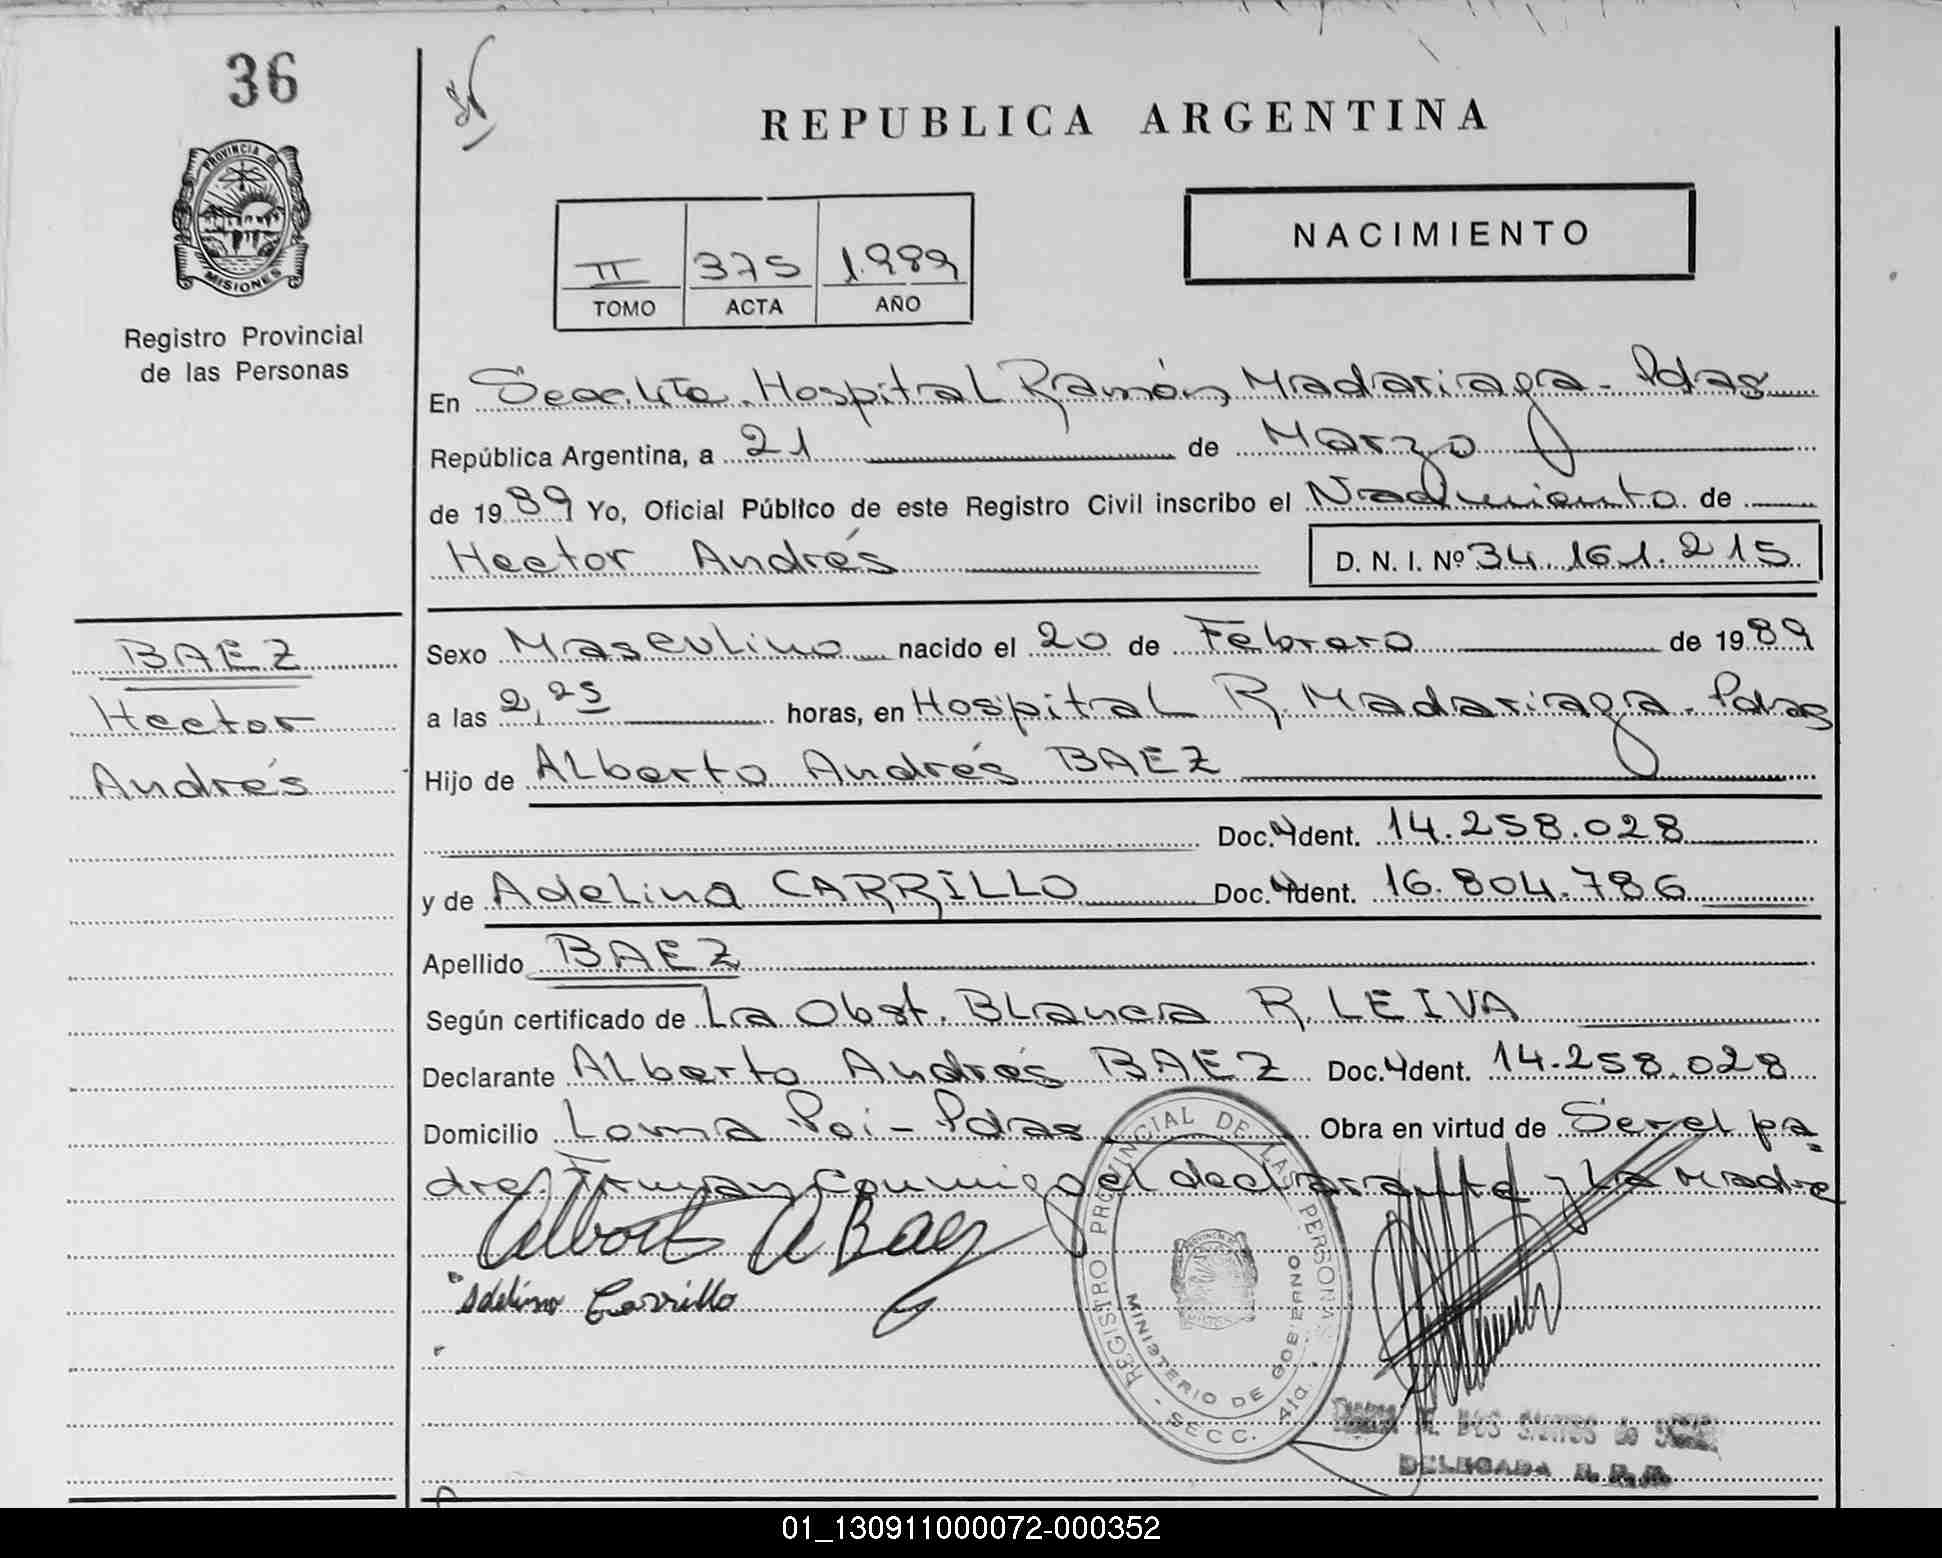 36
PROVINCIA DE
MISIONES
Registro Provincial
de las Personas
REPUBLICA ARGENTINA
NACIMIENTO
II 375 1.989
TOMO ACTA AÑO
En Secc. 4ta. Hospital Ramón Madariaga - Pdas
República Argentina, a 21 de Marzo
de 1989 Yo, Oficial Público de este Registro Civil inscribo el Nacimiento de
Hector Andrés D. N. I. Nº 34.161.215
BAEZ
Hector
Andrés
Sexo Masculino nacido el 20 de Febrero de 1989
a las 2,25 horas, en Hospital R. Madariaga - Pdas
Hijo de ALberto Andrés BAEZ
Doc. Ydent. 14.258.028
y de AdeLina CARRILLO Doc. Ydent. 16.804.786
Apellido BAEZ
Según certificado de La Obst. BLanca R. LEIVA
Declarante ALberto Andrés BAEZ Doc. Ydent. 14.258.028
Domicilio Loma Poi - Pdas Obra en virtud de Ser el pa=
dre. Firman conmigo el declarante y La Madre
Albert A Baez
Adelina Carrillo
REGISTRO PROVINCIAL DE LAS PERSONAS
MINISTERIO DE GOBIERNO
- SECC. 4ta. -
DOS SANTOS de
DELEGADA R. P. P.
01_130911000072-000352